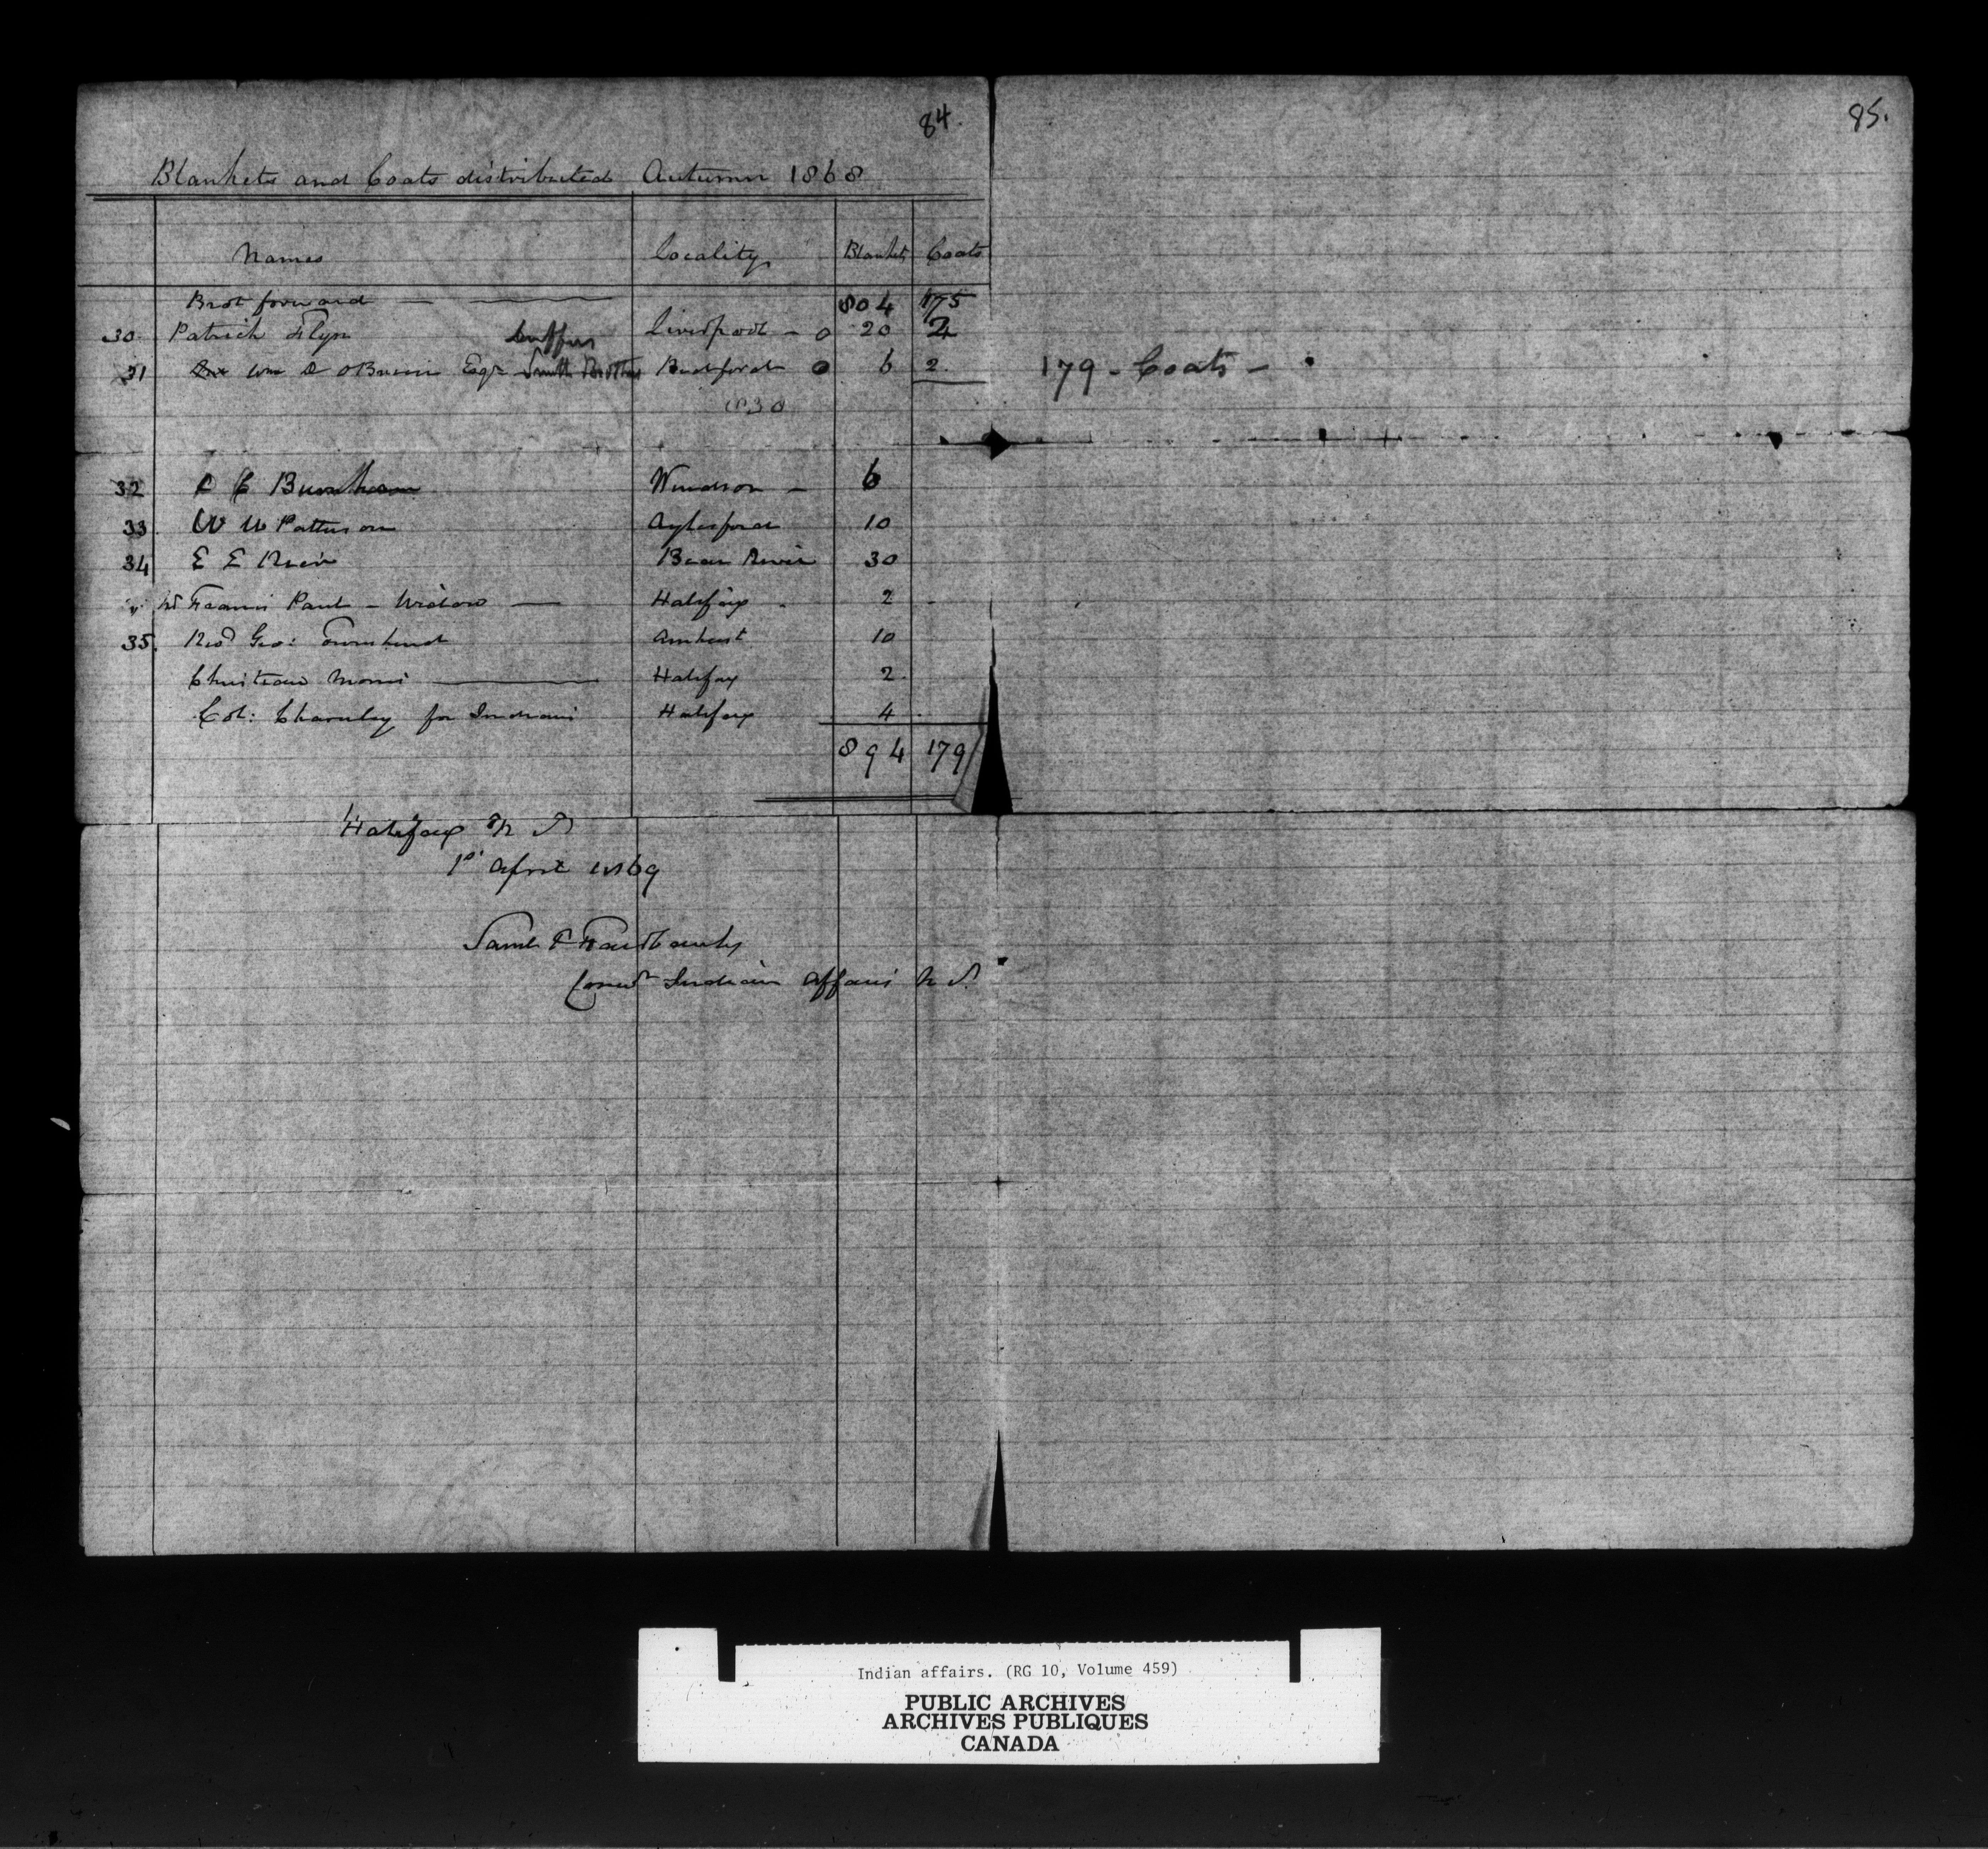 84.
Blankets and Coats distributed Autumn 1868
Names Locality Blankets Coats
Brot forward — 804 175
30 Patrick Flyn Liverpool - 0 20 2
Duffus
31 Wm O'Brien Esqr Smith Brothers Bedford 0 6 2
830
32 Burnham Windsor - 6
33. W W Patterson Aylesford 10
34 E E Rice Bear River 30
" Francis Paul - Widow — Halifax - 2
35. Revd Geo: Townshend Amherst 10
Christian Morris — Halifax 2
Col: Chearnley for Indians Halifax 4
894 179
Halifax N S
1st April 1869
Saml P Fairbanks
Comr Indian Affairs N S
85.
179 - Coats -
Indian affairs. (RG 10, Volume 459)
PUBLIC ARCHIVES
ARCHIVES PUBLIQUES
CANADA